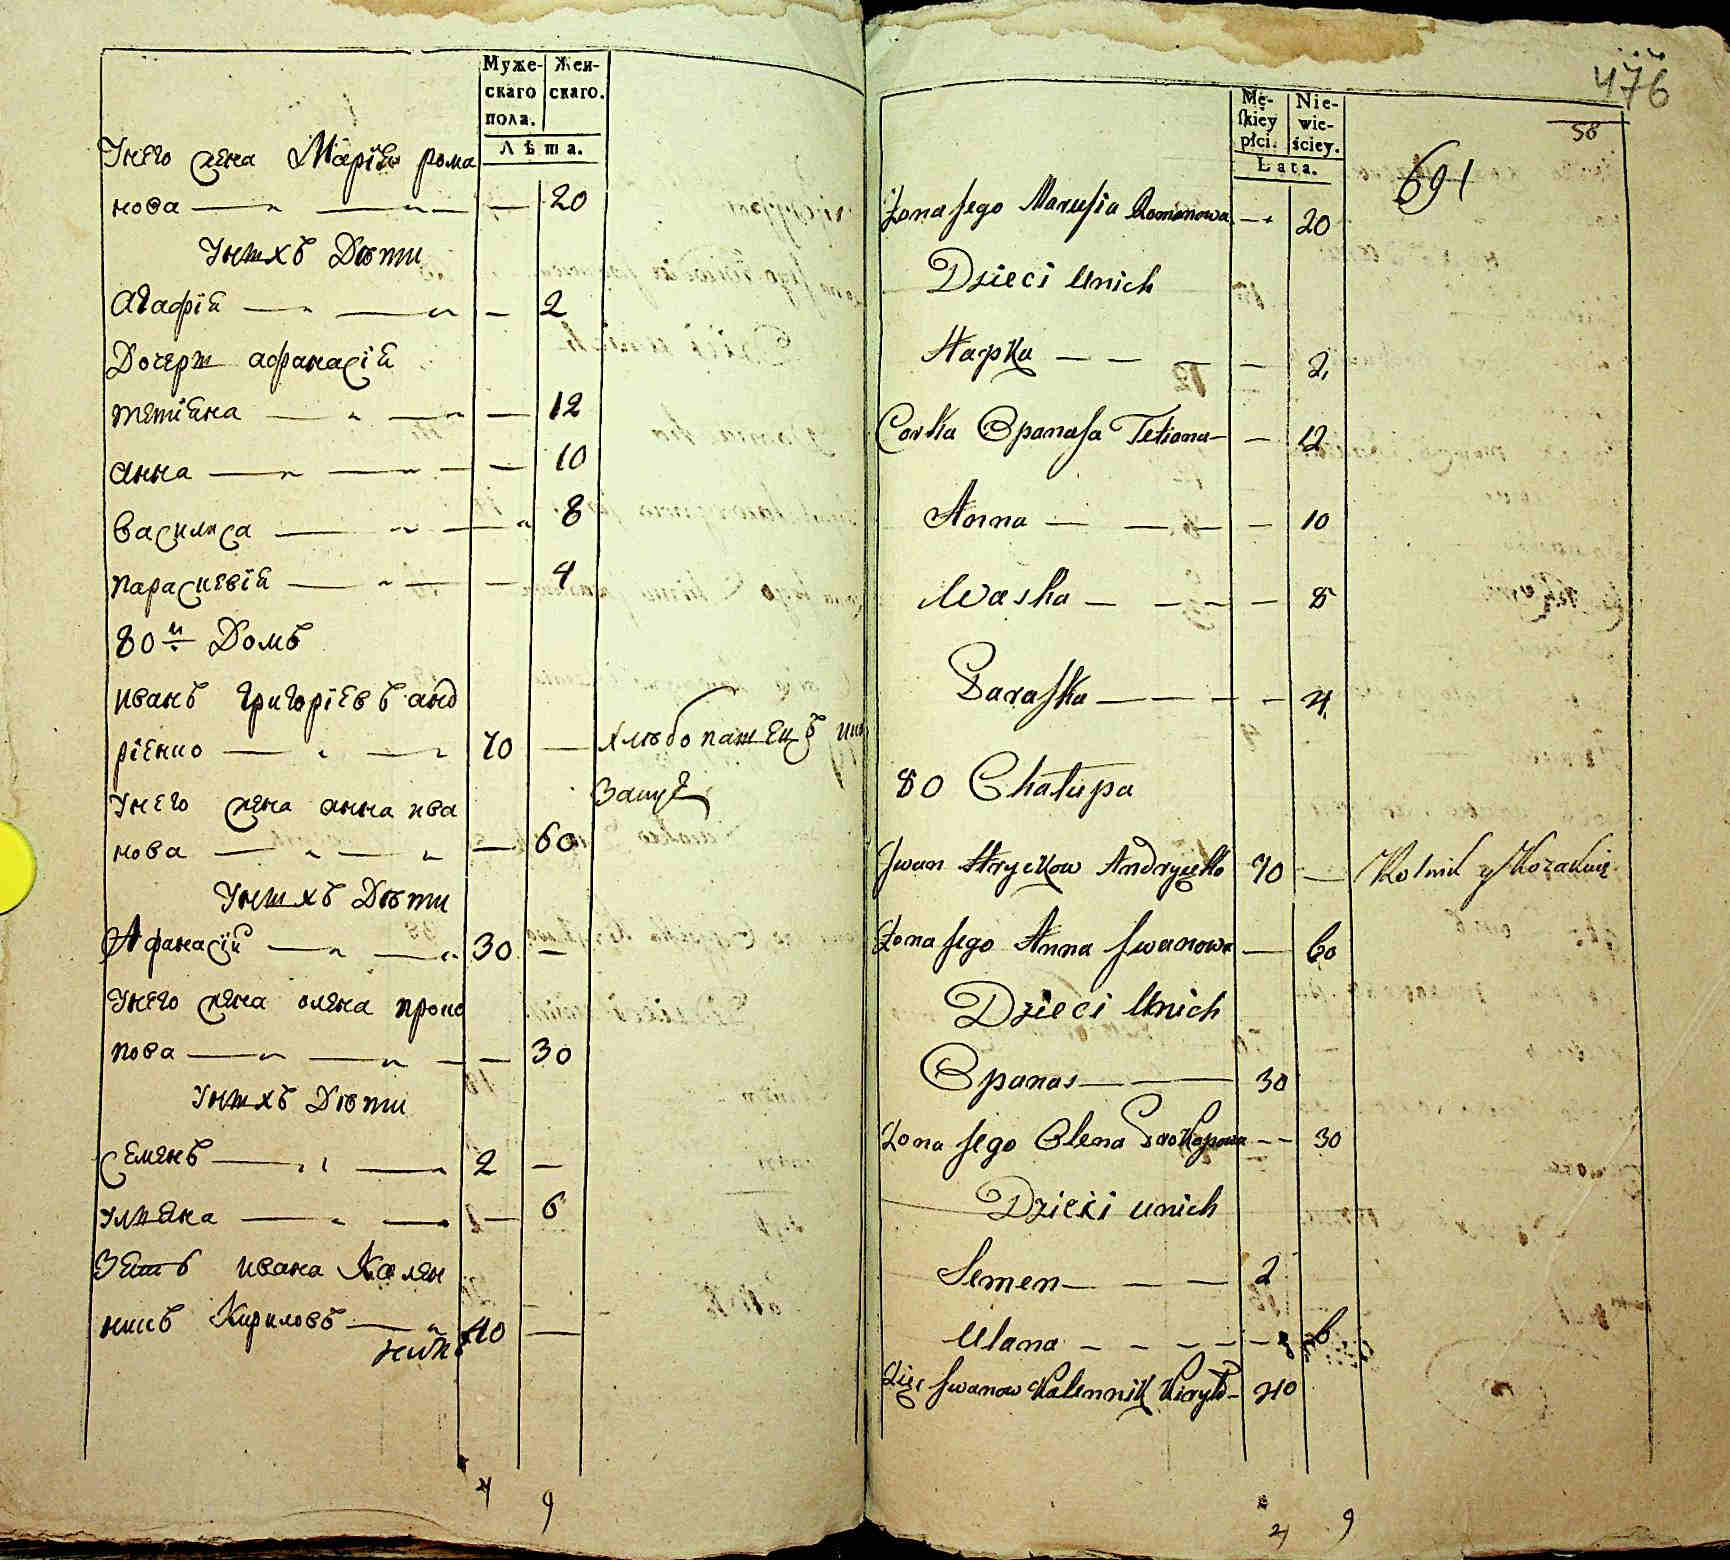 Муже-
скаго
пола.
Жен-
скаго.
Лѣта.
Унего жена Марія рома
нова — — — 20
Унихъ Дѣти
Агафія — — — 2
Дочери афанасія
тетіана — — — 12
анна — — — 10
Василиса — — — 8
параскевія — — — 4
80й Домъ
иванъ григоріевъ анд
ріенко — — 70 — хлѣбопашецъ
Унего жена анна ива
нова — — — 60
Унихъ Дѣти
Афанасій — — 30 —
Унего жена олена проко
пова — — — 30
Унихъ Дѣти
Семенъ — — 2 —
улияна — — — 6
Зять ивана Кален
никъ Кириловъ — 40 —
4 9
476
58
Mę-
ſkiey
płci.
Nie-
wie-
ściey.
Łata.
691
Zona Jego Marusia Romanowa — 20
Dzieci Unich
Hapka — — — 2
Corka Opanasa Tetiana — — 12
Anna — — — 10
Waska — — — 8
Paraska — — — 4
80 Chałupa
Jwan Hryckow Andryieko 70 — Rolnik y Kozakuie
Zona Jego Anna Jwanowa — 60
Dzieci Unich
Opanas — — 30
Zona Jego Olena Prokopowa — — 30
Dzieci unich
Semen — — — 2
Ulana — — — — 6
Zięć Jwanow Kalennik Kiryło — 40
4 9